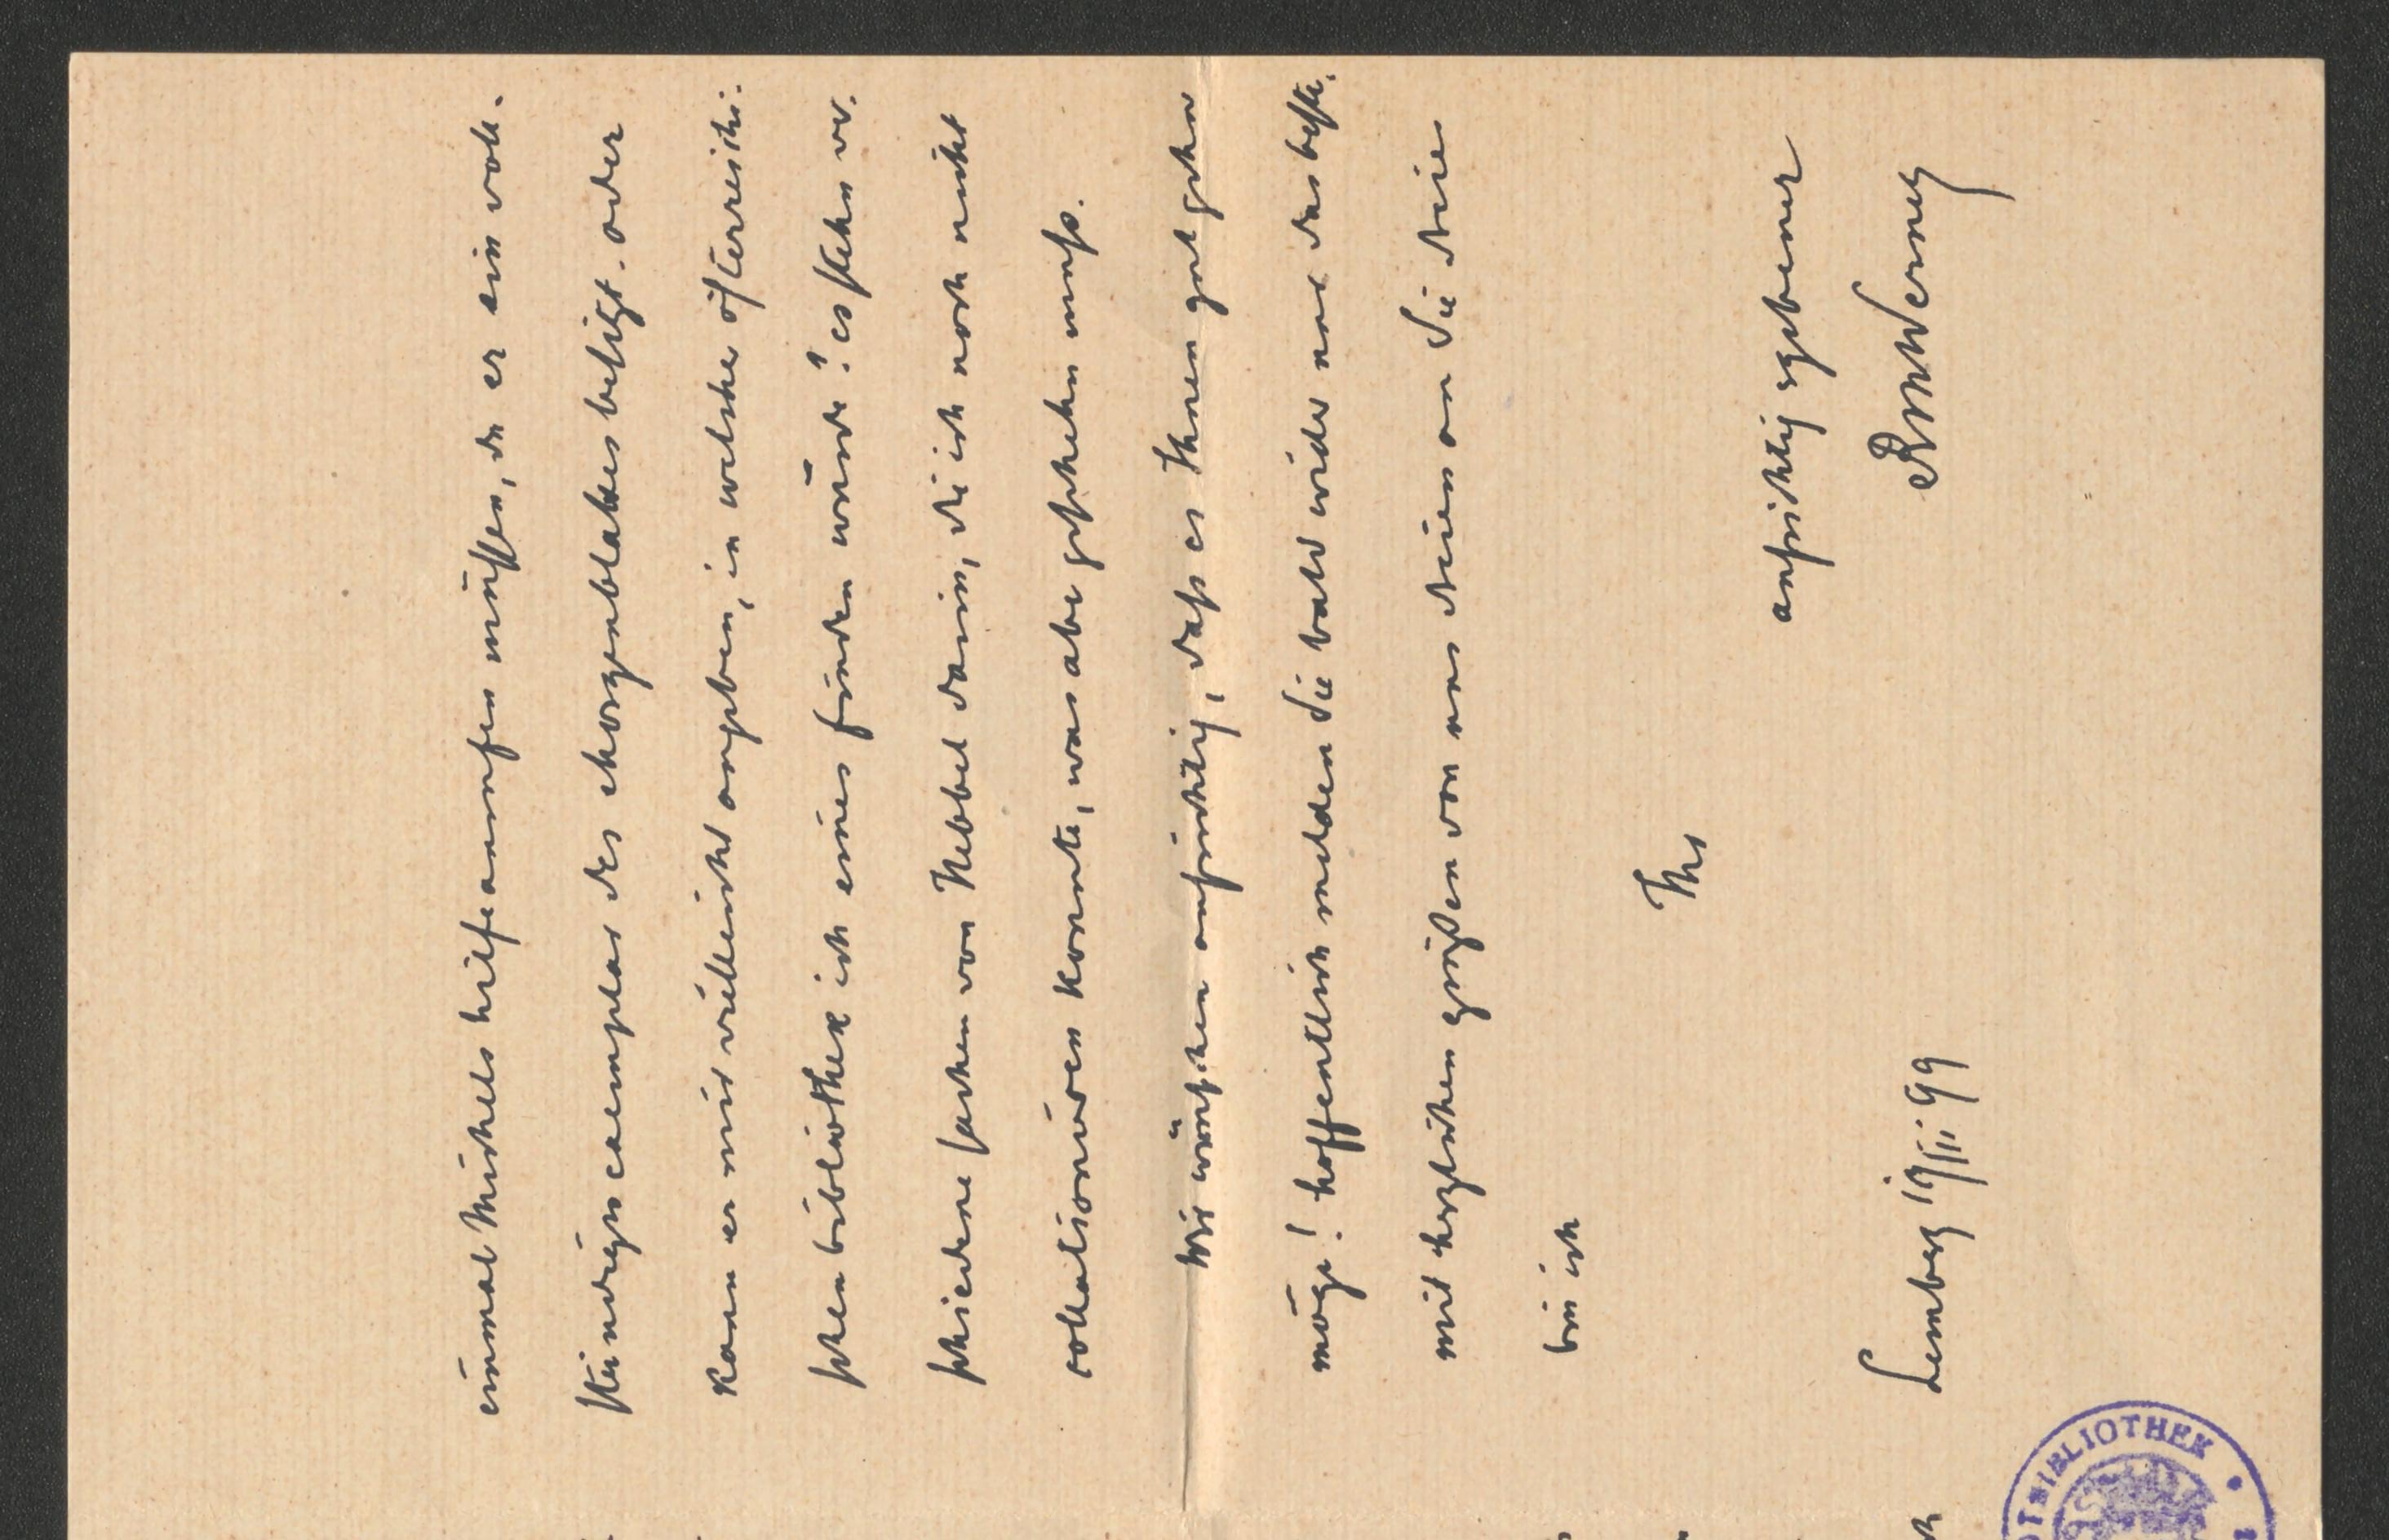 einmal Michels hilfe anrufen müssen, da er ein voll-
ständiges exemplar des Morgenblattes besitzt. oder
kann er mir vielleicht angeben, in welcher österreichi-
schen bibliothek ich eines finden würde? es stehen ver-
schiedene sachen von Hebbel darin, die ich noch nicht
collationieren konnte, was aber geschehen muss.
Wir wünschen aufrichtig, dass es Ihnen gut gehen
möge! hoffentlich melden Sie bald wieder nur das beste.
mit herzlichen grüßen von uns dreien an Sie drei
bin ich
Ihr
aufrichtig ergebener
RMWerner
Lemberg 19/III 99
BIBLIOTHEK